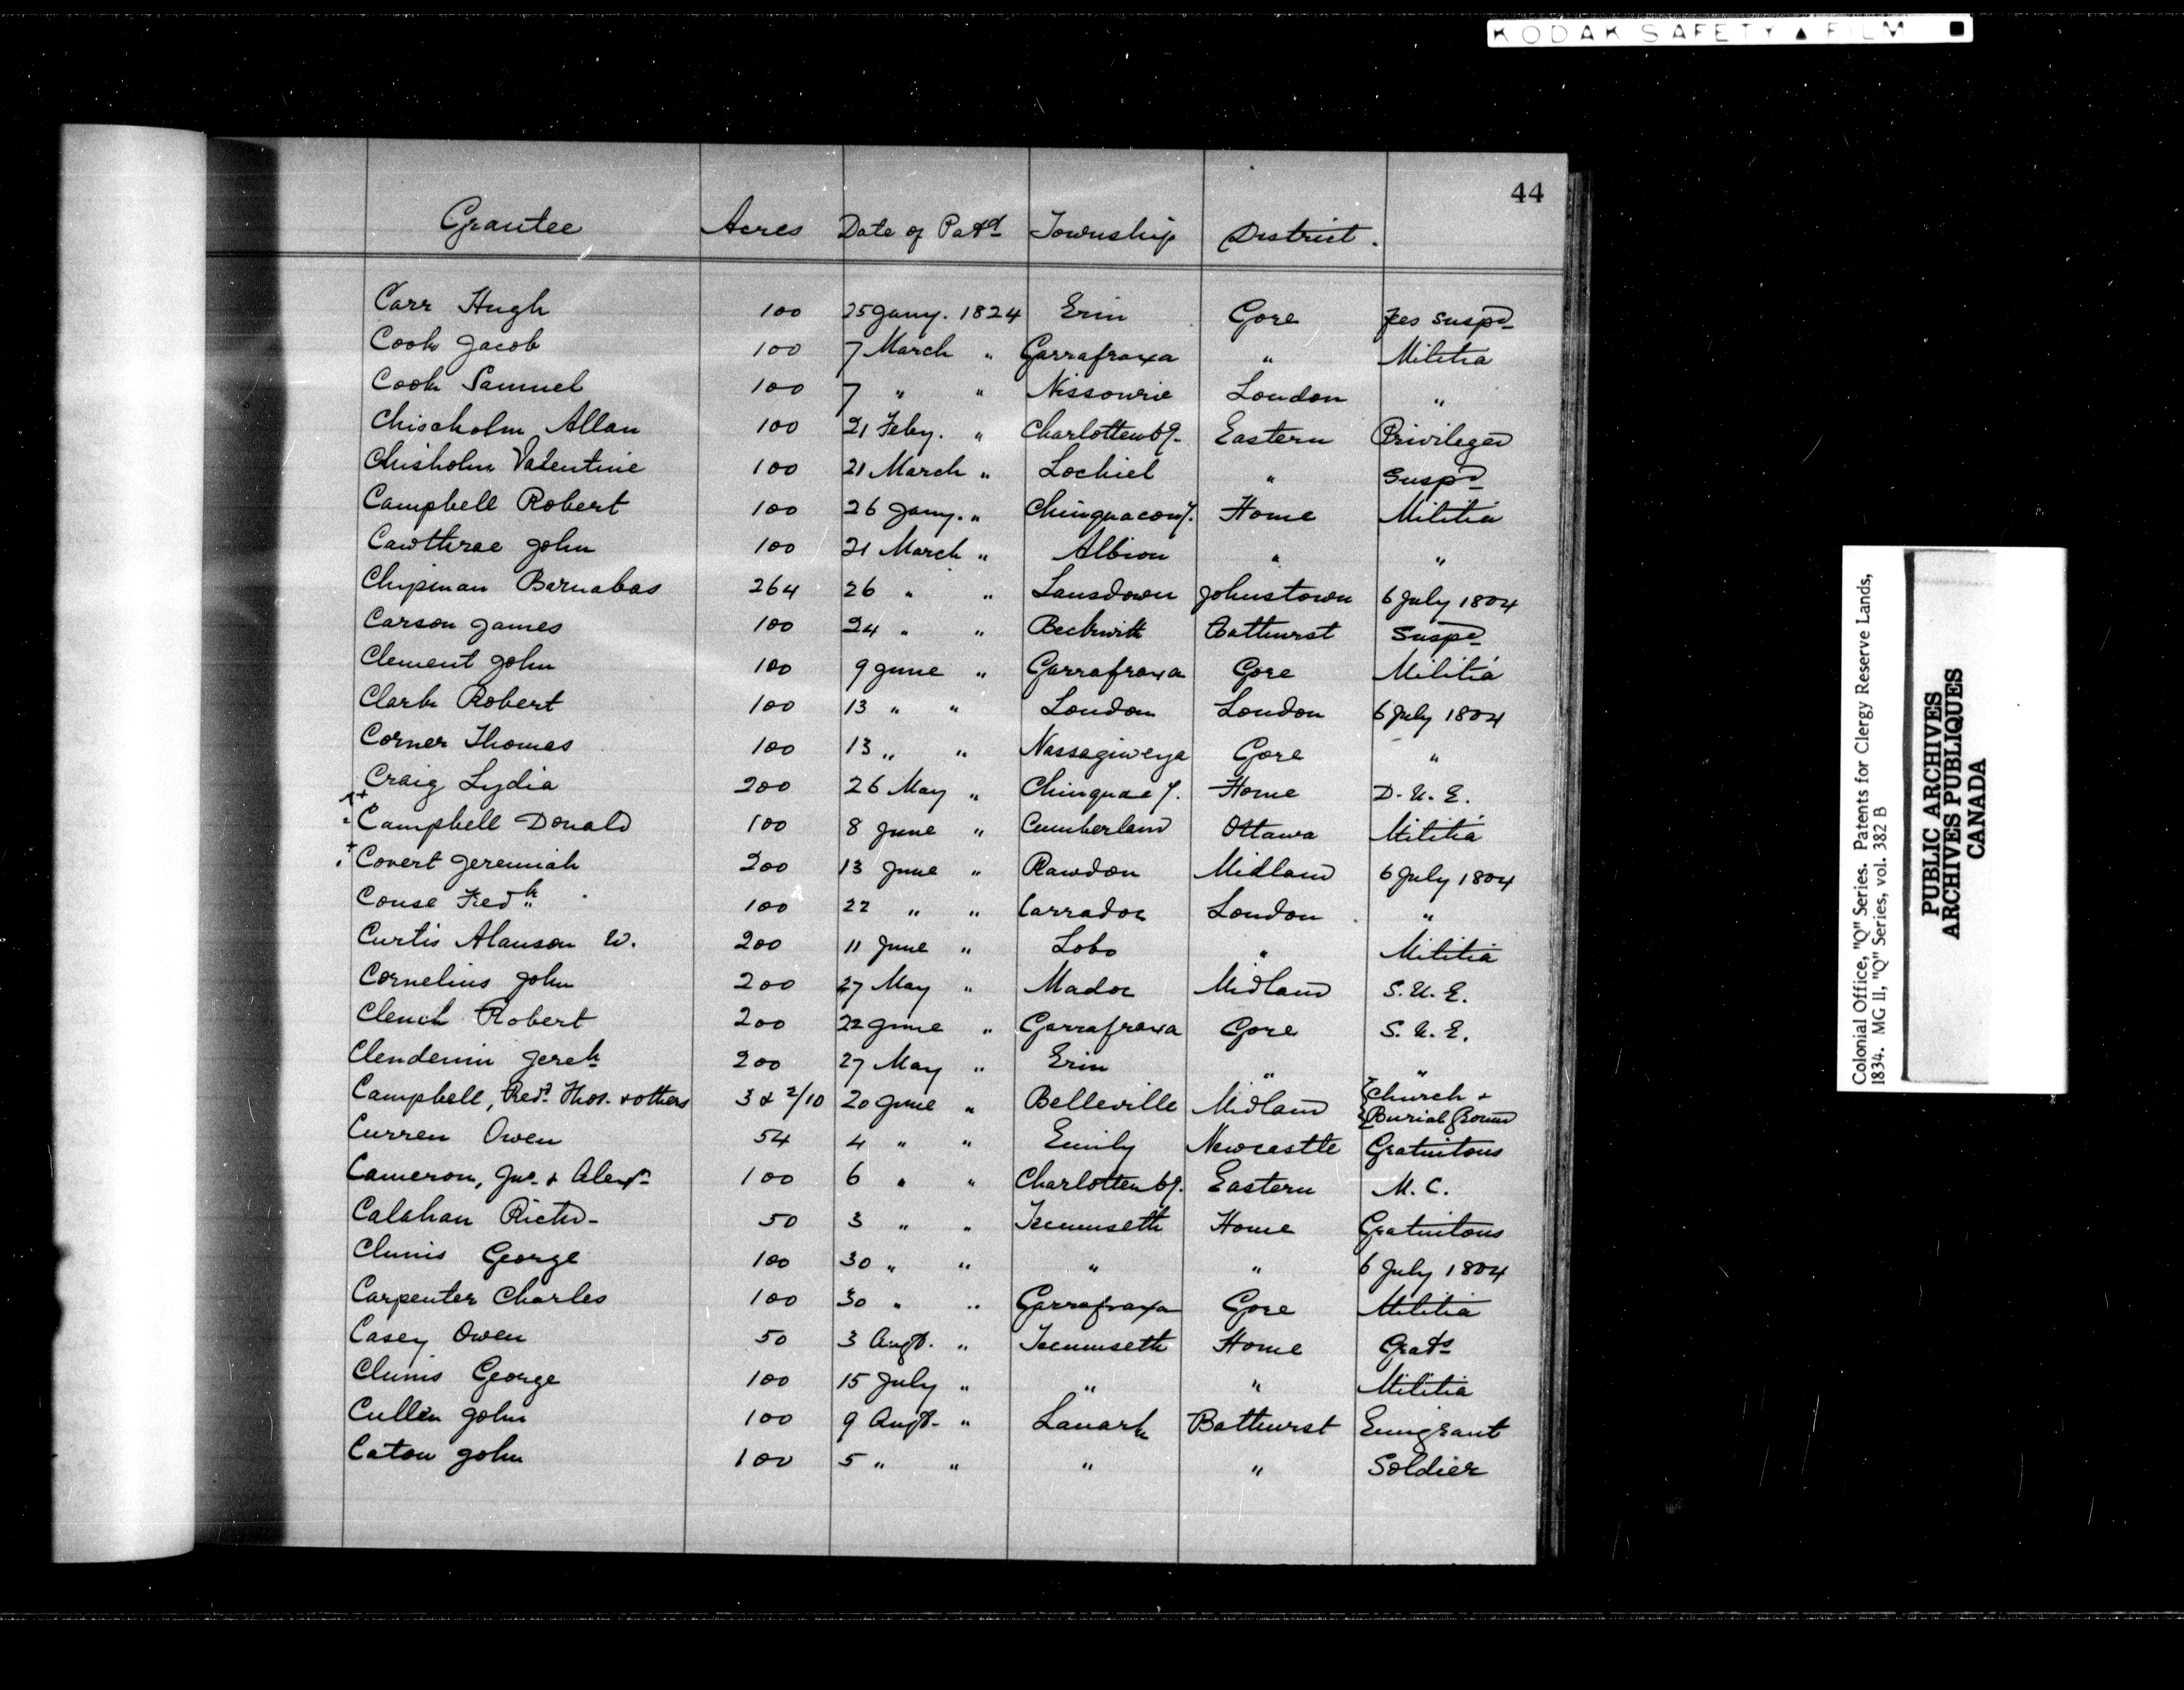 KODAK SAFETY ▲ FILM
44
Grantee Acres Date of Patd Township District.
Carr Hugh 100 25 Jany. 1824 Erin Gore Fees Suspd
Cook Jacob 100 7 March " Garrafraxa " Militia
Cook Samuel 100 7 " " Nissourie London "
Chischolm Allan 100 21 Feby. " Charlottenbg. Eastern Privileged
Chisholm Valentine 100 21 March " Lochiel " Suspd
Campbell Robert 100 26 Jany. " Chinguacousy. Home Militia
Cawthrae John 100 21 March " Albion " "
Chipman Barnabas 264 26 " " Lansdown Johnstown 6 July 1804
Carson James 100 24 " " Beckwith Bathurst Suspd
Clement John 100 9 June " Garrafraxa Gore Militia
Clark Robert 100 13 " " London London 6 July 1804
Corner Thomas 100 13 " " Nassagiweya Gore "
Craig Lydia 200 26 May " Chinguacy. Home D. U. E.
Campbell Donald 100 8 June " Cumberland Ottawa Militia
Covert Jeremiah 200 13 June " Rawdon Midland 6 July 1804
Couse Fredk 100 22 " " Carradoc London "
Curtis Alanson W. 200 11 June " Lobo " Militia
Cornelius John 200 27 May " Madoc Midland S. U. E.
Clench Robert 200 22 June " Garrafraxa Gore S. U. E.
Clendenin Jereh 200 27 May " Erin " "
Campbell, Revd. Thos. & others 3 & 2/10 20 June " Belleville Midland Church &
Burial Ground
Curren Owen 54 4 " " Emily Newcastle Gratuitous
Cameron, Jno. & Alexr 100 6 " " Charlottenbg. Eastern M. C.
Calahan Richd 50 3 " " Tecumseth Home Gratuitous
Clunis George 100 30 " " " " 6 July 1804
Carpenter Charles 100 30 " " Garrafraxa Gore Militia
Casey Owen 50 3 Augt. " Tecumseth Home Grats
Clunis George 100 15 July " " " Militia
Cullen John 100 9 Augt. " Lanark Bathurst Emigrant
Caton John 100 5 " " " " Soldier
Colonial Office, "Q" Series. Patents for Clergy Reserve Lands,
1834. MG 11, "Q" Series, vol. 382 B
PUBLIC ARCHIVES
ARCHIVES PUBLIQUES
CANADA